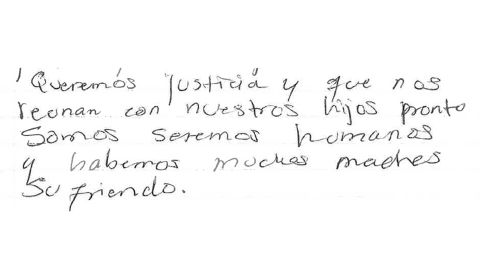 'Queremós justiciá y que nos
reonan con nuestros hijos pronto
Somos seremos humanos
y habemos muchas madres
Sufriendo.